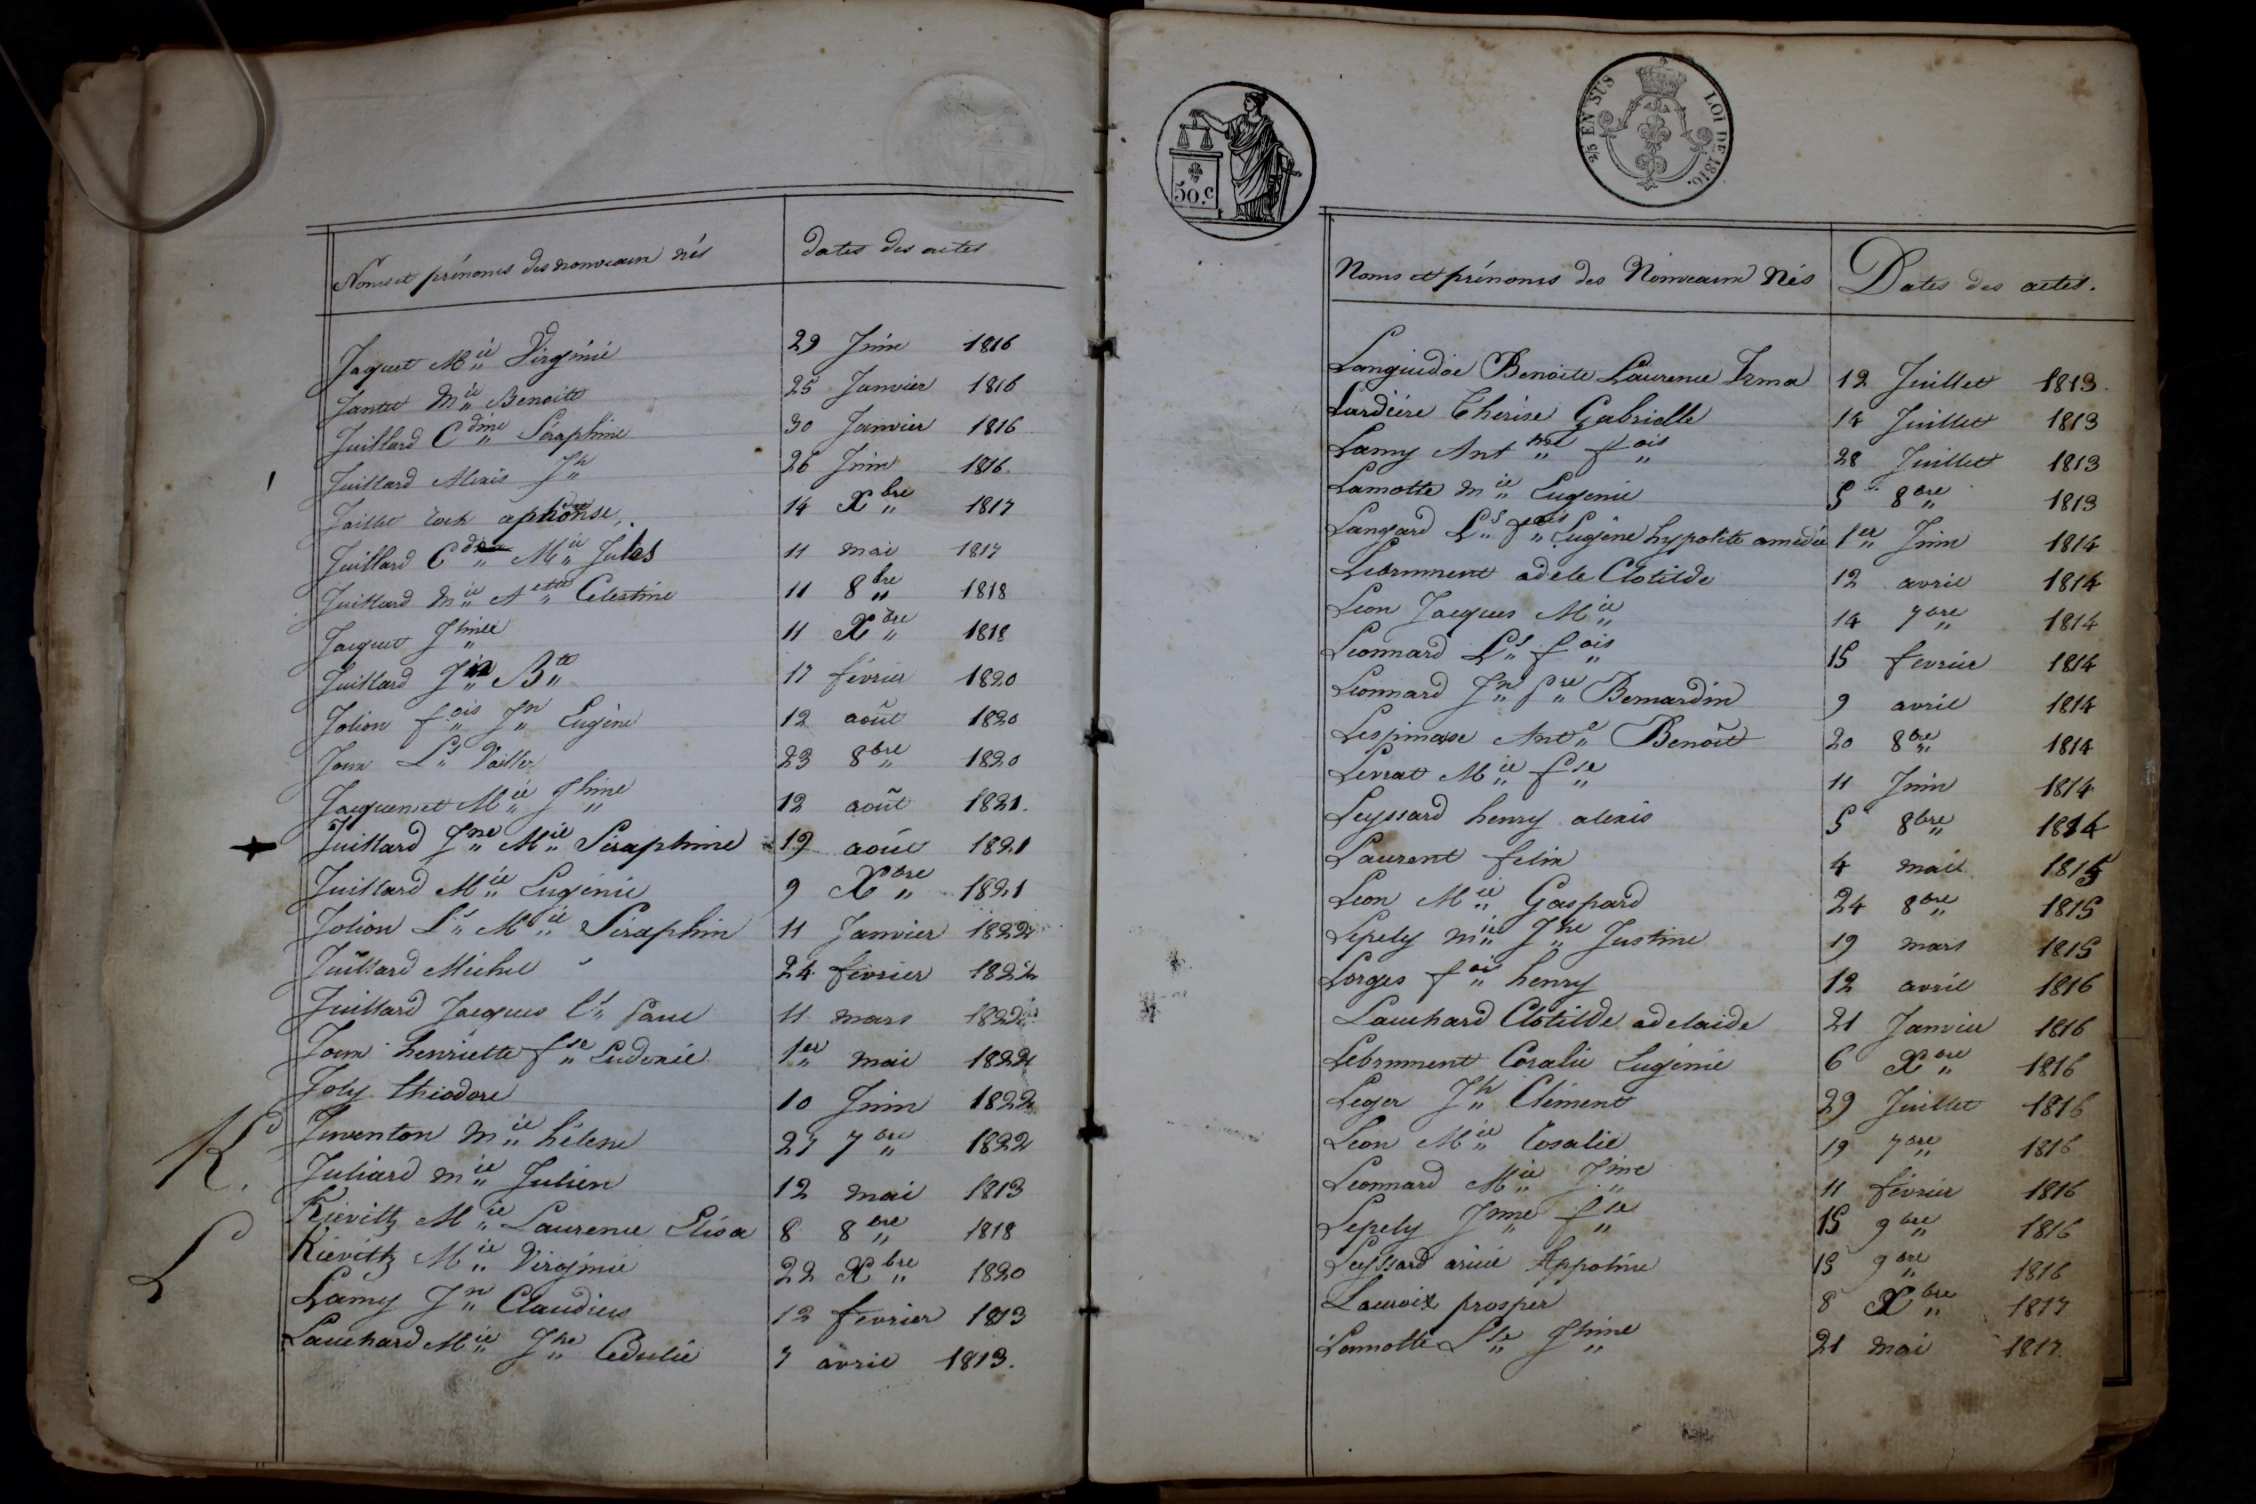 Noms et prénoms des nouveaux nés dates des actes
Jaquet M.ie Virginie 29 Juin 1816
Jantet M.ie Benoite 25 Janvier 1816
Juillard C.dine Séraphine 30 Janvier 1816
Juillard Alexis J.h 26 Juin 1816.
aphonse, 14 X.bre 1817
Juillard C.de M.ie Jules 11 mai 1817
Juillard M.ie A.ette Celestine 11 8.bre 1818
Jacquet J.hine 11 X.bre 1818
Juillard J.n B.te 17 février 1820
Jolion f.ois J.n Eugène 12 août 1820
L.s 23 8.bre 1820
Jacquemet M.ie J.hine 12 août 1821.
Juillard J.ne M.ie Séraphine 19 août 1821
Juillard M.ie Eugénie 9 X.bre 1821
Jolion L.s M.ie Séraphin 11 Janvier 1822
Juillard Michel 24 février 1822
Juillard Jacques L.s Paul 11 mars 1822
henriette f.se 1.er mai 1822
Joly théodore 10 Juin 1822
K.
Juventon M.ie hélene 27 7.bre 1822
Juliard M.ie Julien 12 mai 1813
Kievitz M.ie Laurence Elisa 8 8.bre 1818
L
Kievitz M.ie Virginie 22 X.bre 1820
Lamy J.n Claudius 12 fevrier 1813
Lauchard M.ie J.he 7 avril 1813.
50.c
2/5 EN SUS LOI DE 1816.
Noms et prénoms des Nouveaux Nés Dates des actes.
Benoite Laurence Irma 12 Juillet 1813.
Lardière Therése Gabrielle 14 Juillet 1813
Lamy Ant.ne f.ois 28 Juillet 1813
Lamotte M.ie Eugenie 5 8.bre 1813
L.s f.ois Eugène hypolite amedée 1.er Juin 1814
Lebrument adele Clotilde 12 avril 1814
Leon Jacques M.ie 14 7.bre 1814
Leonnard L.s f.ois 15 fevrier 1814
Leonnard J.n P.re Bernardin 9 avril 1814
Lespinasse Ant.e Benoît 20 8.bre 1814
Levrat M.ie f.se 11 Juin 1814
Leyssard henry alexis 5 8.bre 1814
Laurent felix 4 mai 1815
Leon M.ie Gaspard 24 8.bre 1815
Lepely M.ie J.ne Justine 19 mars 1815
Lorges f.ois henry 12 avril 1816
Lauchard Clotilde adelaide 21 Janvier 1816
Lebrument Coralie Eugénie 6 X.bre 1816
Leger J.h Clément 29 Juillet 1816
Leon M.ie Rosalie 19 7.bre 1816
Leonnard M.ie J.ine 11 février 1816
Lepely J.nne f.se 15 9.bre 1816
Leyssard Appoline 15 9.bre 1816
Lacroix prosper 8 X.bre 1817
Lamotte L.se J.hine 21 mai 1817.